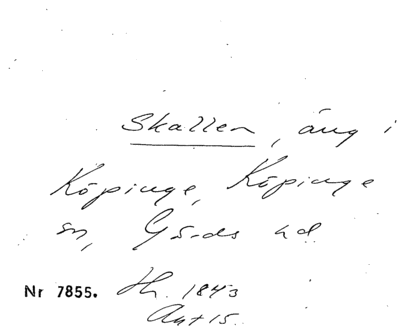 Skallen, äng i
Köpinge, Köpinge
sn, Gärds hd
Nr 7855. Hh. 1843
Akt 15.